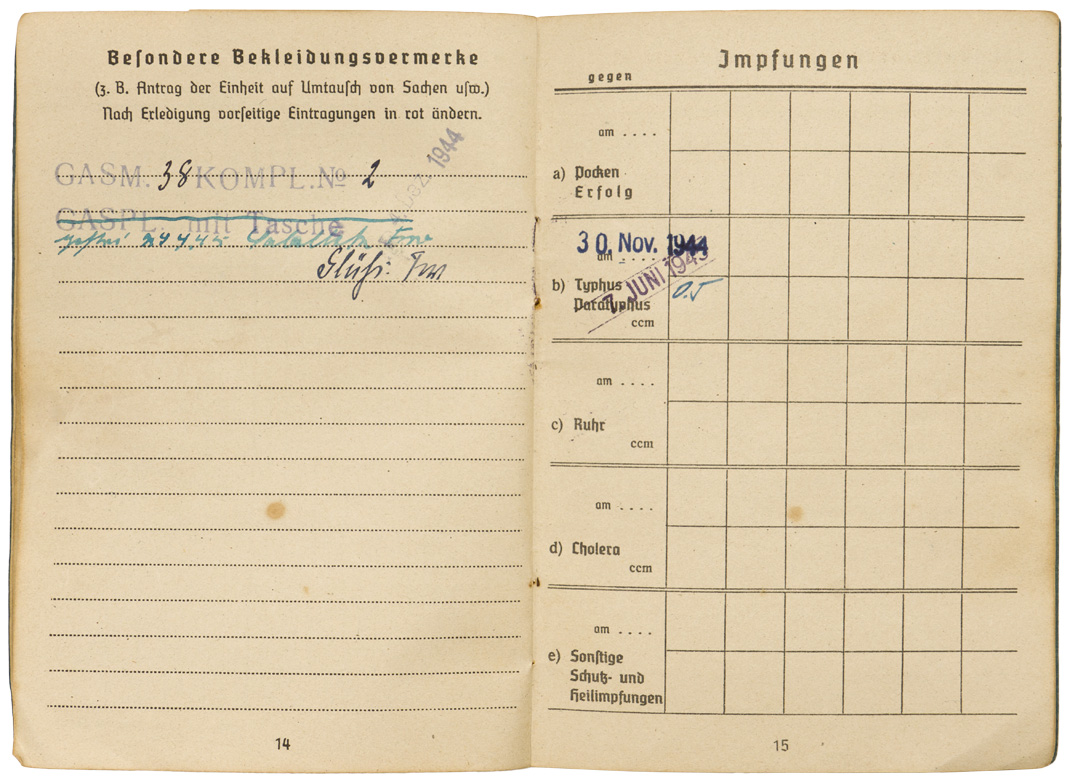 Besondere Bekleidungsvermerke
(z. B. Antrag der Einheit auf Umtausch von Sachen usw.)
Nach Erledigung vorseitige Eintragungen in rot ändern.
Dez. 1944
GASM. 38 KOMPL. No 2
GASPL. mit Tasche
14
Impfungen
gegen
am ....
a) Pocken
Erfolg
30. Nov. 1944
am ....
7. JUNI 1943
b) Typhus
Paratyphus
ccm
0.5
am ....
c) Ruhr
ccm
am ....
d) Cholera
ccm
am ....
e) Sonstige
Schutz- und
Heilimpfungen
15